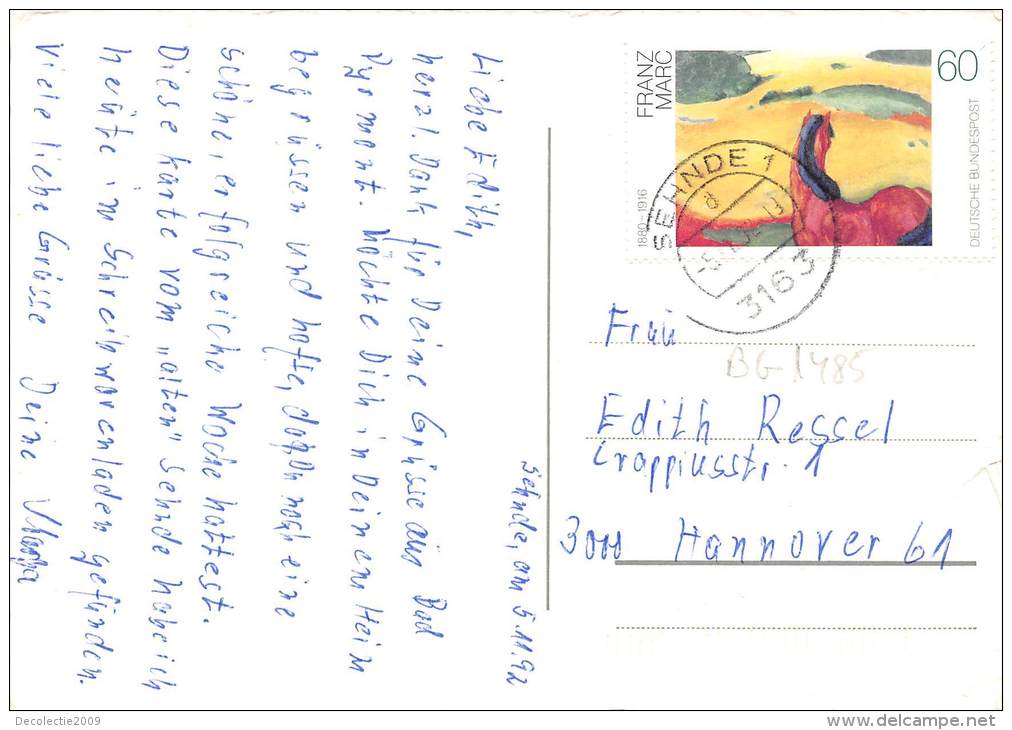 Sehnde, am 5.11.92
Liebe Edith,
herzl. Dank für Deine Grüsse aus Bad
Pyrmont. Möchte Dich in Deinem Heim
begrüssen und hoffe, dass Du noch eine
schöne, erfolgreiche Woche hattest.
Diese Karte vom „alten" Sehnde habe ich
heute im Schreibwarenladen gefunden.
Viele liebe Grüsse Deine
FRANZ
MARC
1880–1916
60
DEUTSCHE BUNDESPOST
SEHNDE 1
d
3163
Frau
BG-1485
Edith Ressel
Crappiusstr. 1
3000 Hannover 61
Decolectie2009
www.delcampe.net